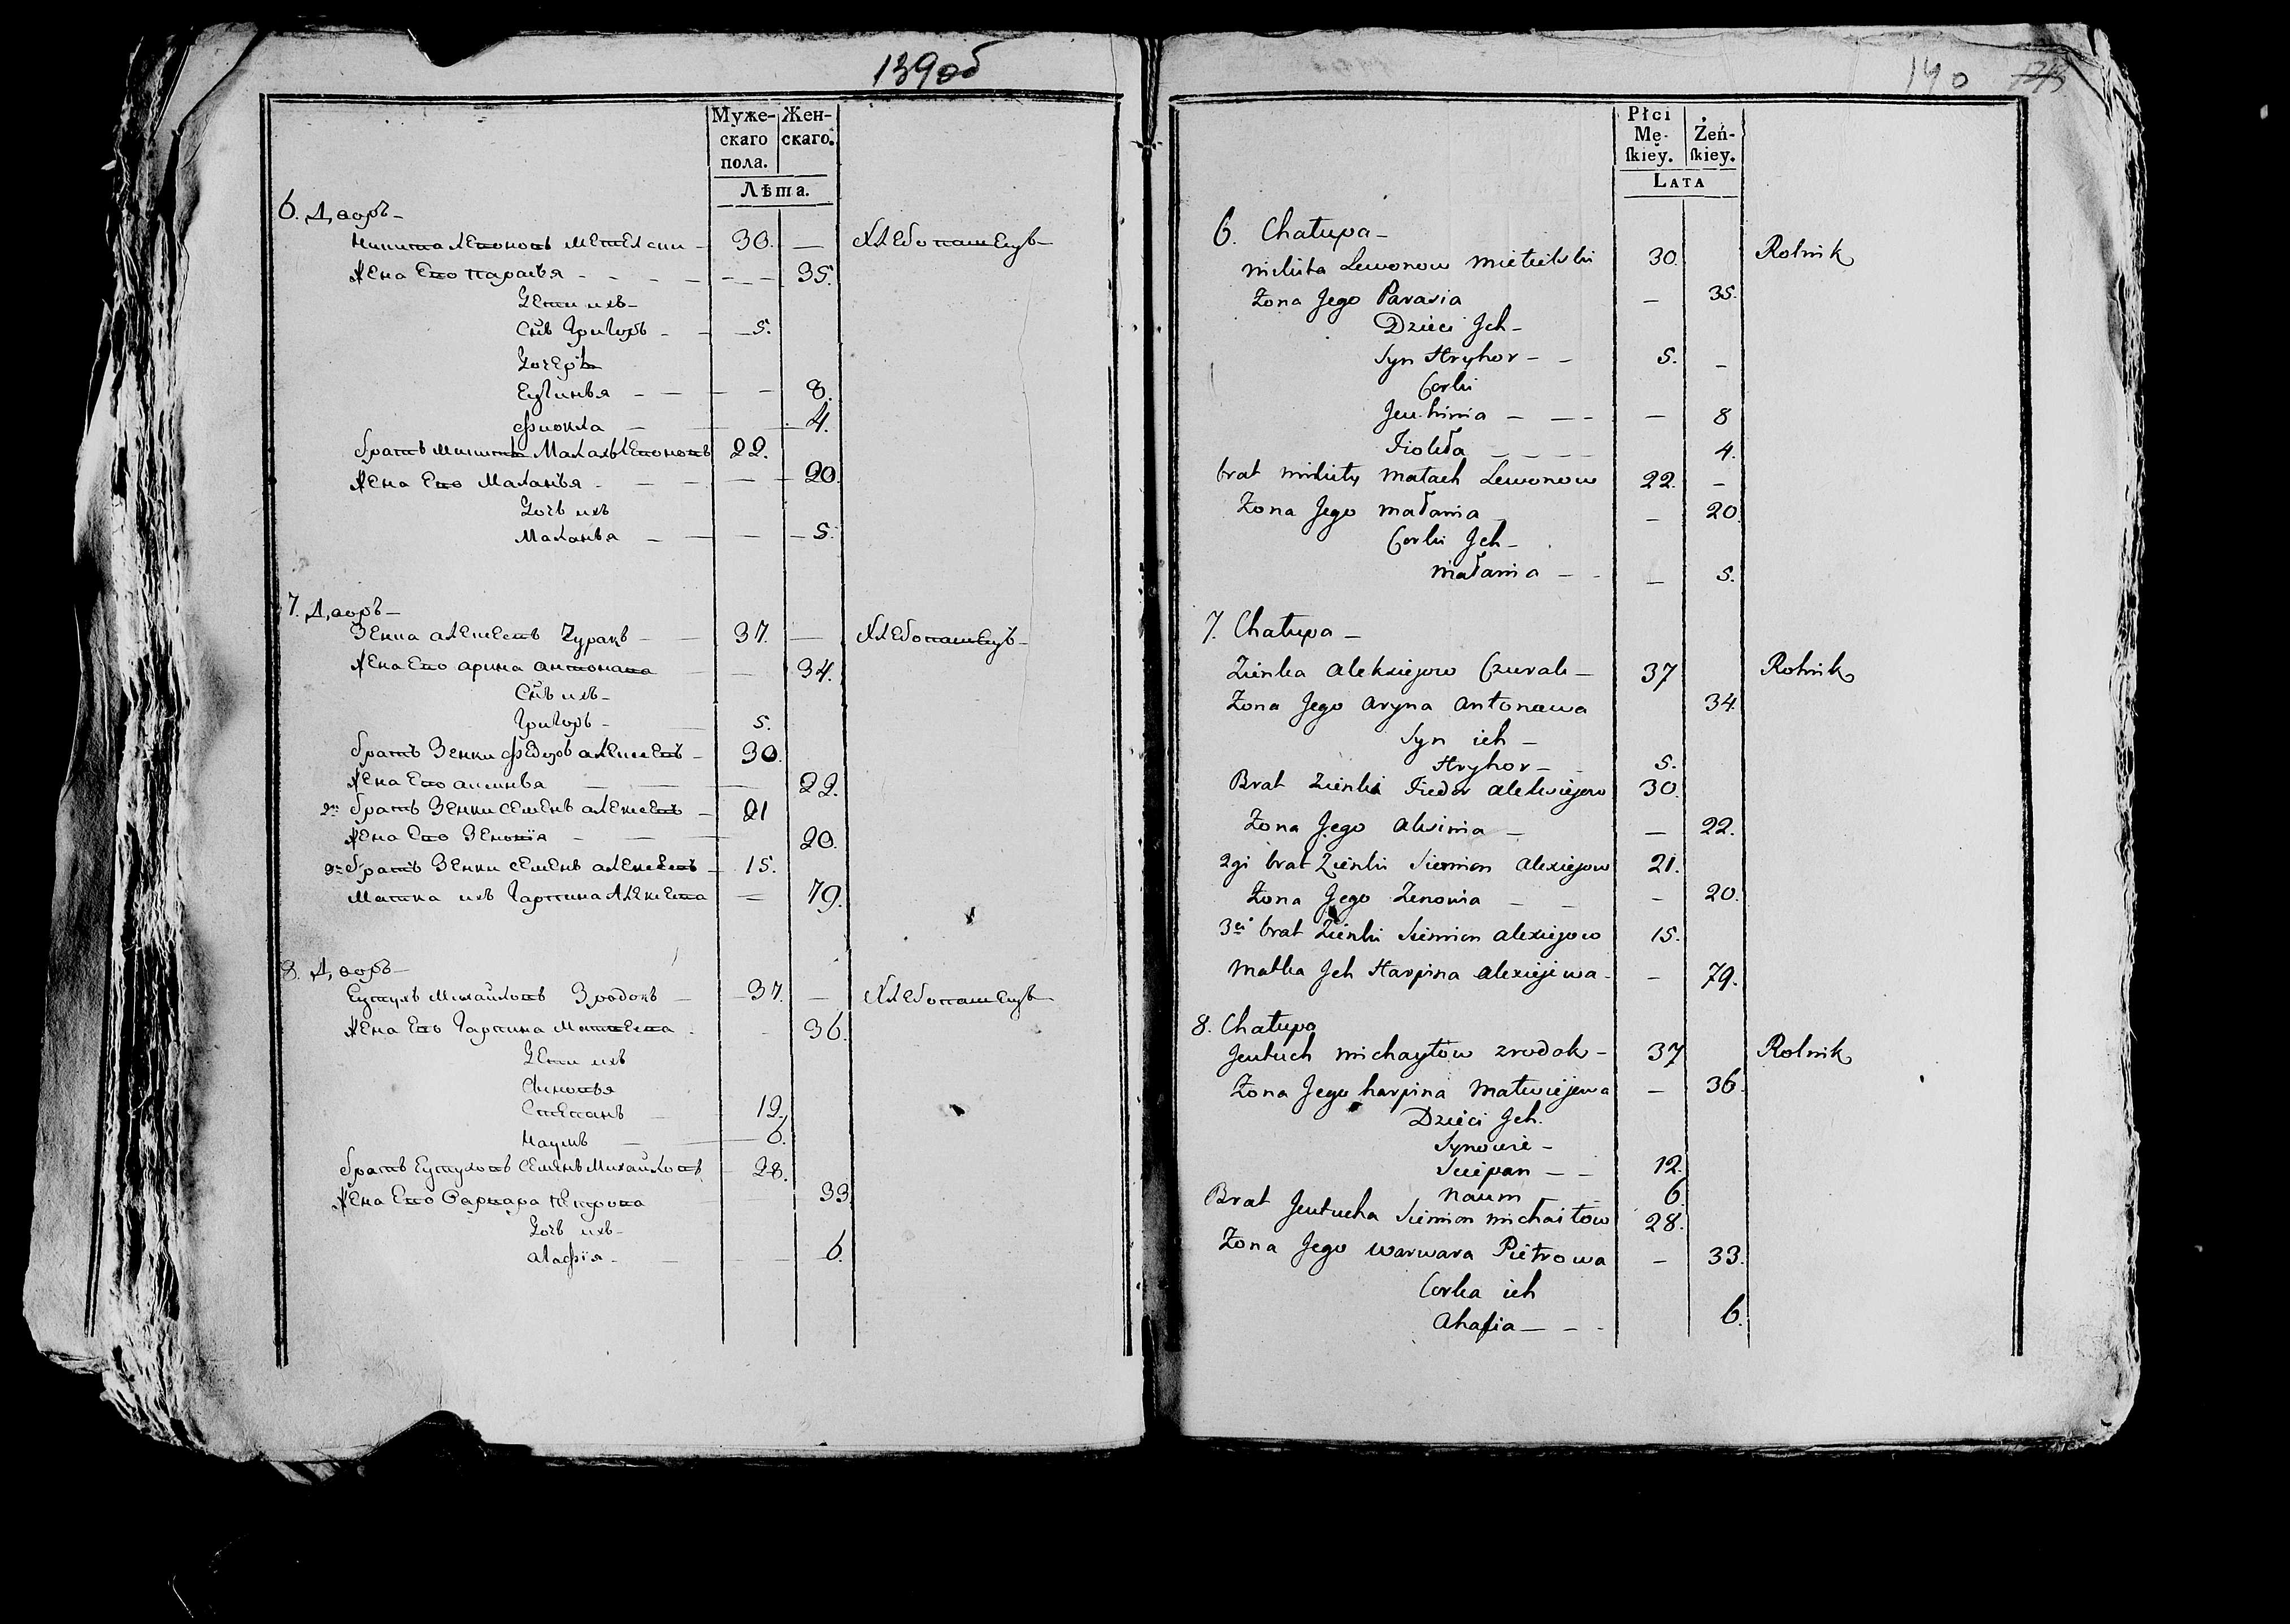 139об
Муже-
скаго
пола.
Жен-
скаго.
Лѣта.
6. Дворъ
Микита Левоновъ Метелски - 30. —
Хлебопашецъ
Жена Ево Парасья - 35.
Дети ихъ
Сн̃ъ Григоръ - 5.
Дочерѣ
Евгинья — 8.
Фиокла — 4.
братъ Микитѣ Малахъ Левоновъ 22.
Жена Ево Маланья — 20.
Дочь ихъ
Маланья — 5.
7. Дворъ
Зенка Алексеевъ Чуракъ — 37. —
Хлебопашецъ
Жена Ево Арина Антонова 34.
Сн̃ъ ихъ
Григоръ 5.
братъ Зенки Федоръ Алексеевъ 30.
Жена Ево Аксинья 22.
2й братъ Зенки Семенъ Алексеевъ 21
Жена Ево Зеновія 20.
3й братъ Зенки Семенъ Алексеевъ 15.
Матка ихъ Гарпина Алексеева — 79.
8. Дворъ
Евтухъ Михайловъ Зродокъ — 37. —
Хлебопашецъ
Жена Ево Гарпина Матвеева 36.
Дети ихъ
Сыновья
Степанъ 12.
Наумъ — 6.
братъ Евтуховъ Семенъ Михайловъ 28.
Жена Ево Варвара Петрова 33.
Дочь ихъ
Агафія 6.
140
Płci
Mę-
ſkiey.
Żeń-
ſkiey.
LATA
6. Chałupa
Mikita Lewonow Mietielski 30.
Rolnik
Żona Jego Parasia — 35.
Dzieci Jch
Syn Hryhor 5. —
Corki
Jeuhinia — 8
Fiokła 4.
brat Mikity Małach Lewonow 22. —
Żona Jego Małania — 20
Corki Jch
Małania — 5.
7. Chałupa
Zienka Aleksiejow Czurak 37
Rolnik
Żona Jego Aryna Antonowa 34.
Syn ich
Hryhor 5.
Brat Zienki Fiedor Aleksiejow 30.
Żona Jego Aksinia — 22.
2gi brat Zienki Siemion Alexiejow 21.
Żona Jego Zenowia - 20.
3ci brat Zienki Siemion Alexiejow 15.
Matka Jch Harpina Alexiejewa — 79.
8. Chałupa
Jeutuch Michayłow Zrodok 37
Rolnik
Żona Jego harpina Matwiejewa — 36.
Dzieci Jch.
Synowie
Sciepan 12.
Naum 6.
Brat Jeutucha Siemion Michaiłow 28.
Żona Jego Warwara Pietrowa — 33.
Corka ich
Ahafia 6.